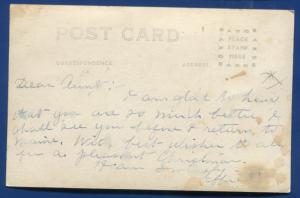 POST CARD
PLACE
STAMP
HERE
CORRESPONDENCE ADDRESS
Dear Aunt:
I am glad to hear
that you are so much better. I
shall see you before I return to
Maine. With best wishes to all
for a pleasant Christmas.
I am